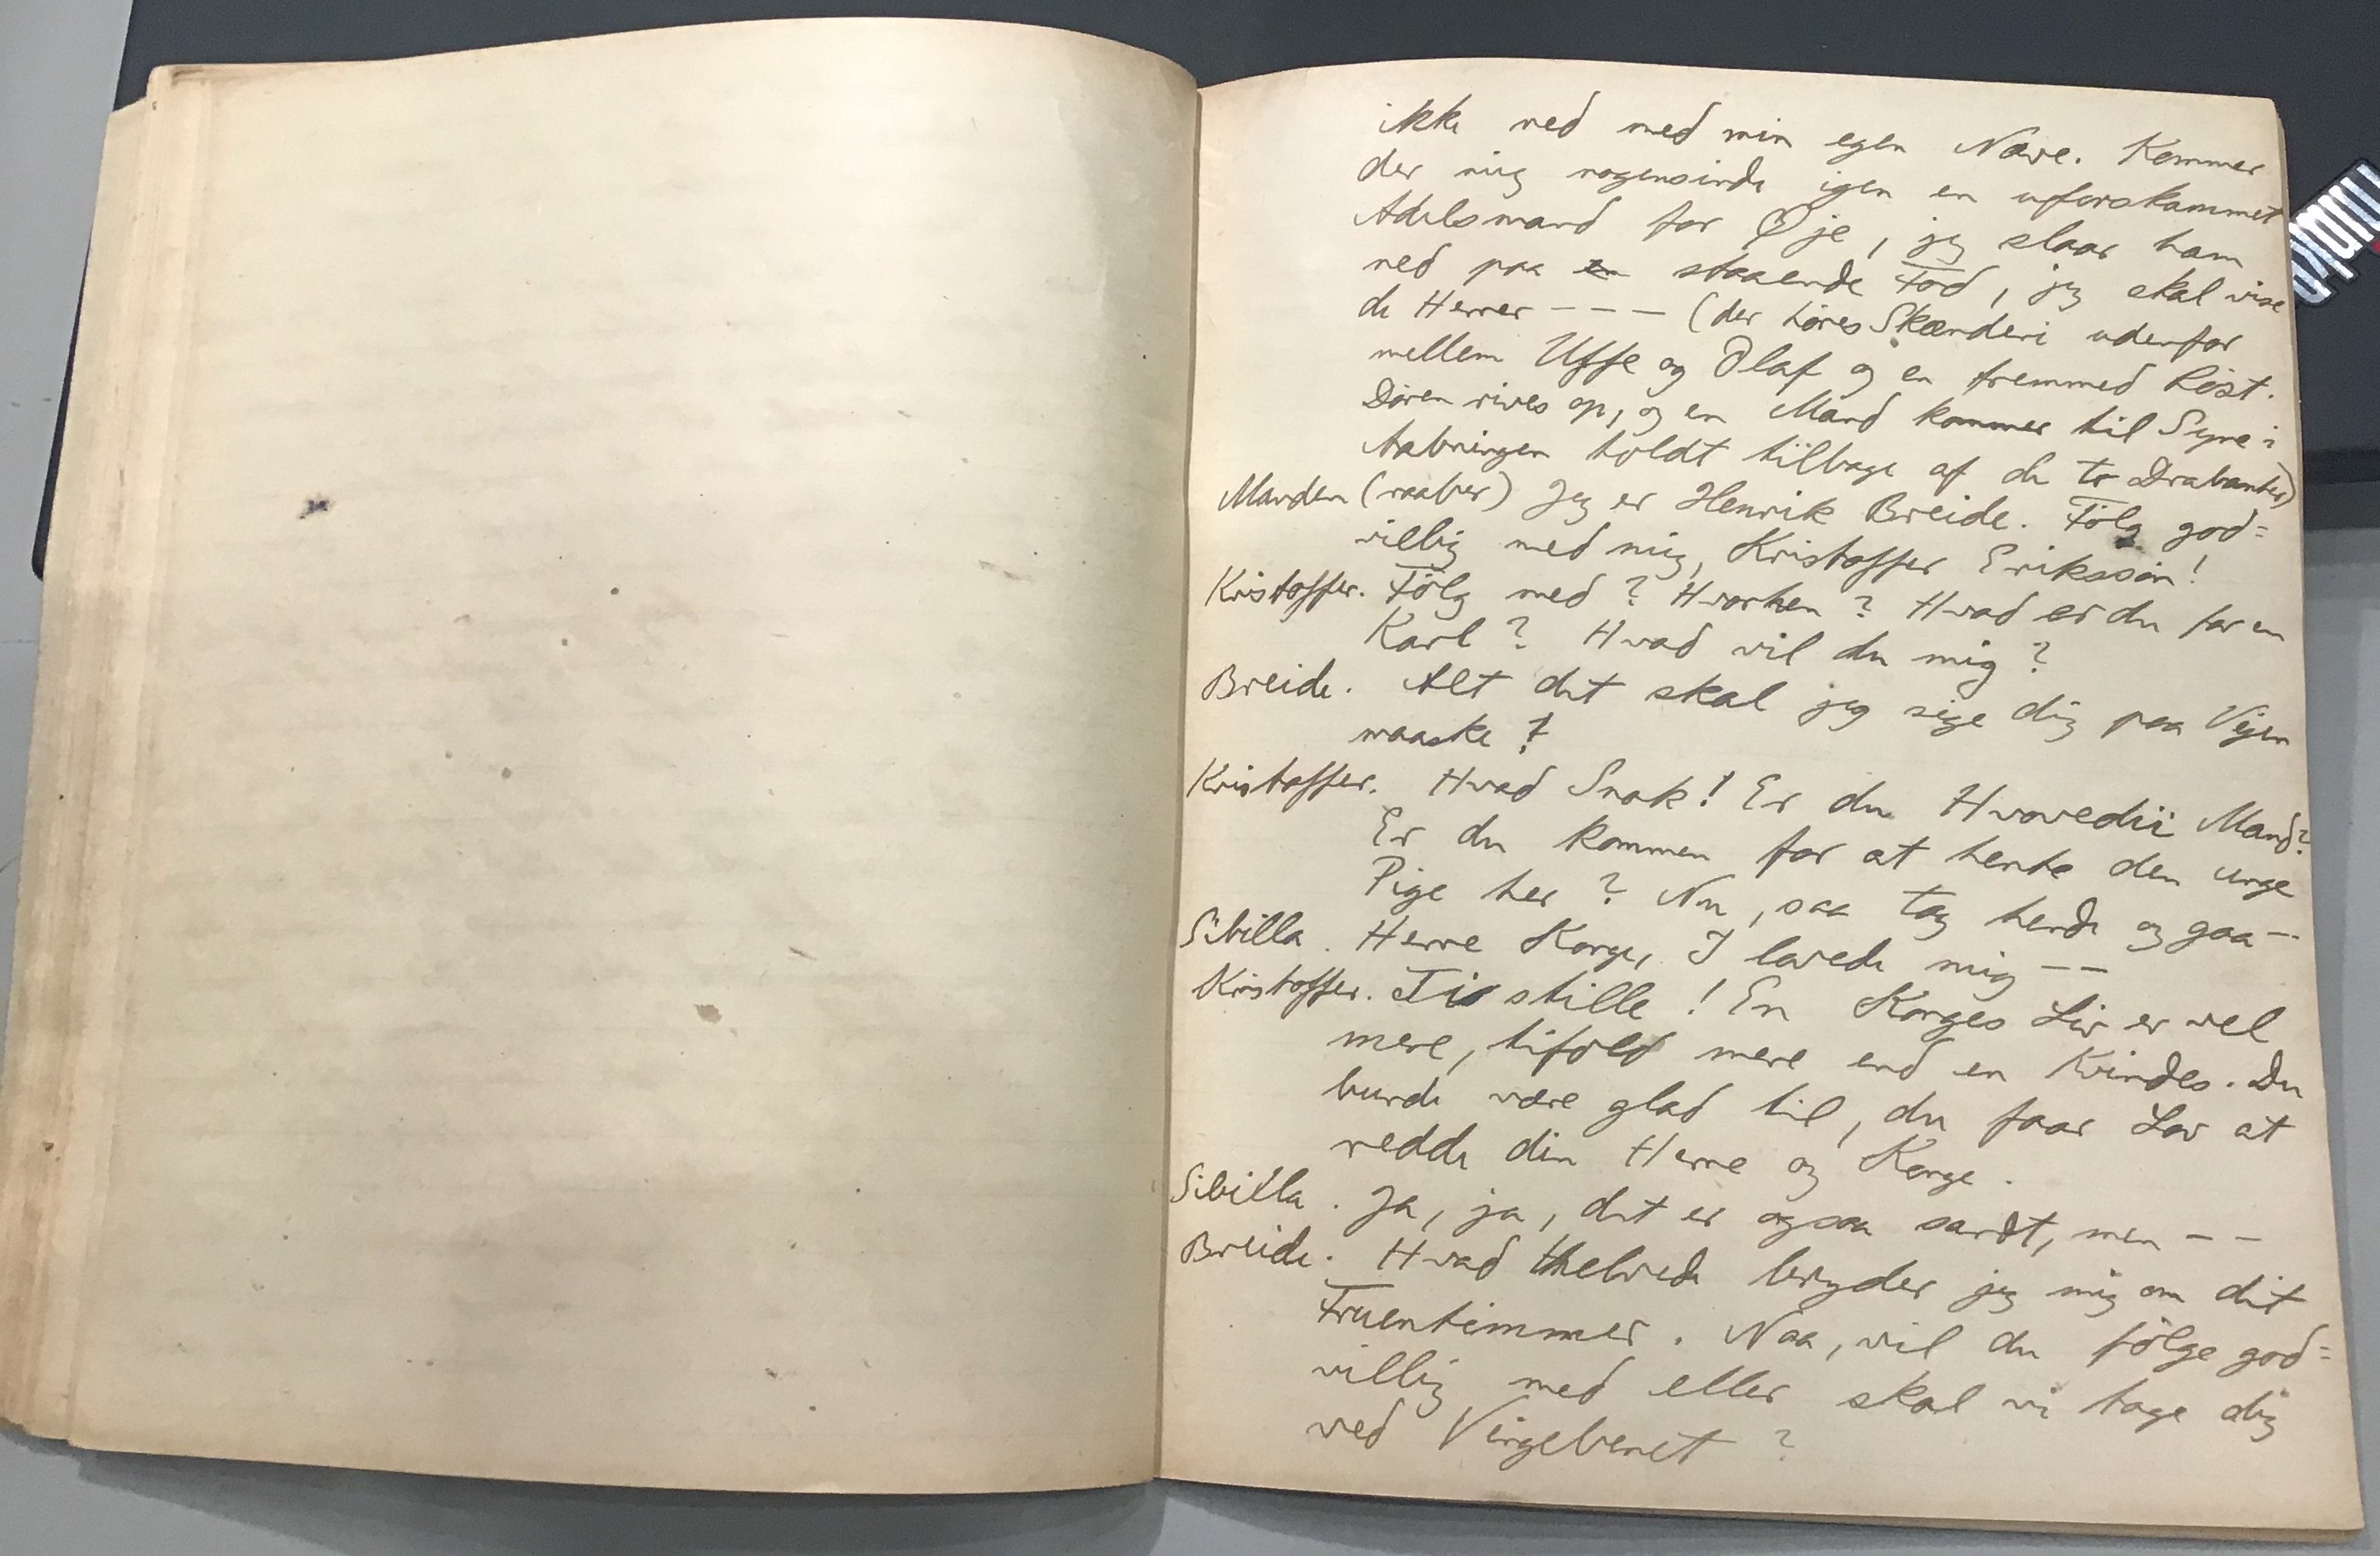 ikke ned med min egen Næve. Kommer
der mig nogensinde igen en uforskammet
Adelsmand for Øje, jeg slaar ham
ned paa en staaende Fod, jeg skal vise
de Herrer --- (der höres Skænderi udenfor
mellem Uffe og Olaf og en fremmed Röst.
Dören rives op, og en Mand kommer til Syne i
Aabningen holdt tilbage af de to Drabanter)
Manden (raaber) Jeg er Henrik Breide. Fölg god=
villig med mig, Kristoffer Eriksön!
Kristoffer. Fölg med? Hvorhen? Hvad er du for en
Karl? Hvad vil du mig?
Breide. Alt det skal jeg sige dig paa Vejen
maaske!
Kristoffer. Hvad Snak! Er du Hvovedii Mand?
Er du kommen for at hente den unge
Pige her? Nu, saa tag hende og gaa --
Sibilla. Herre Konge, I lovede mig --
Kristoffer. Ti stille! En Konges Liv er vel
mere, tifold mere end en Kvindes. Du
burde være glad til, du faar Lov at
redde din Herre og Konge.
Sibilla. Ja, ja, det er ogsaa sandt, men --
Breide. Hvad Helvede bryder jeg mig om dit
Fruentimmer. Naa, vil du fölge god=
villig med eller skal vi tage dig
ved Vingebenet?